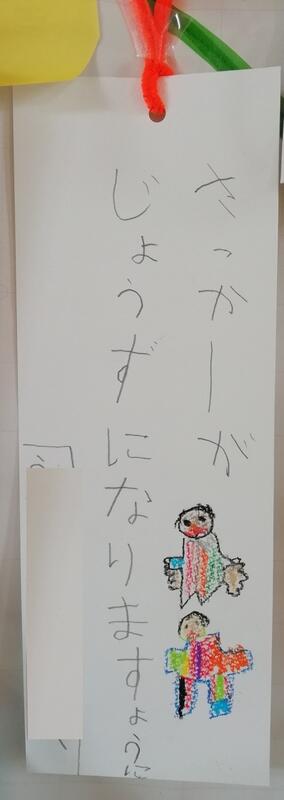 さっかーが
じょうずになりますょうに